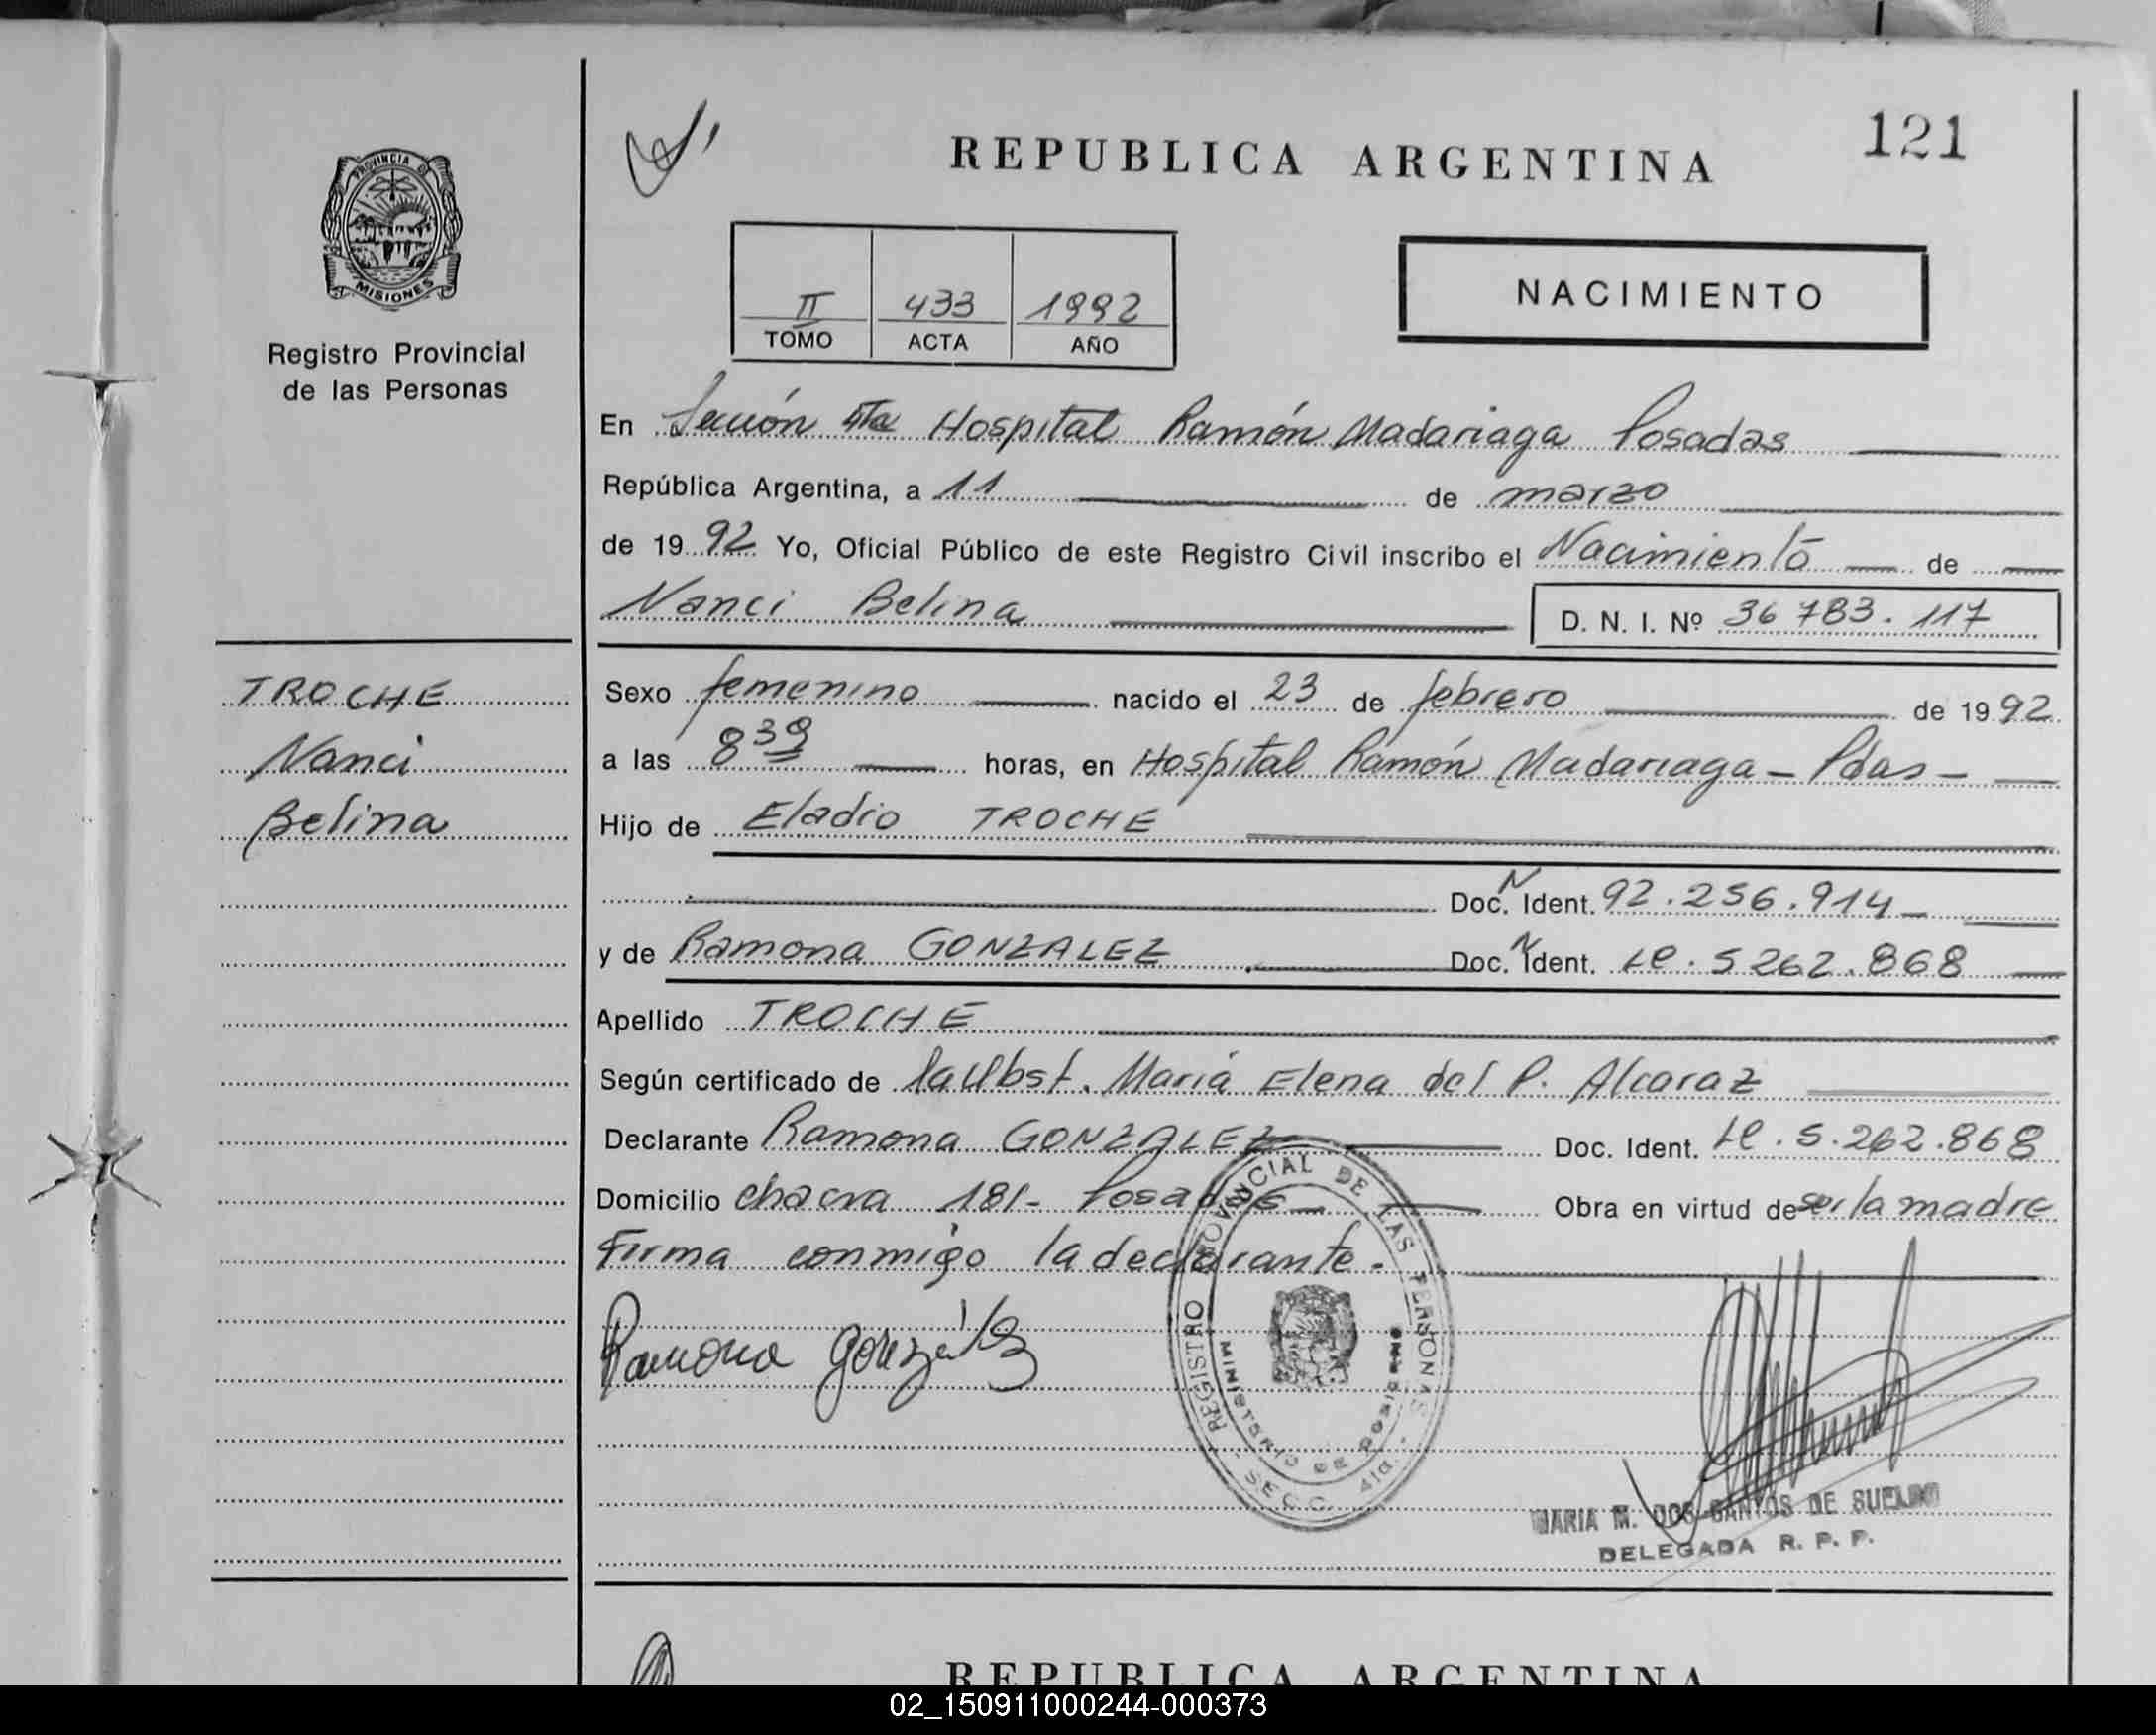 121
REPUBLICA ARGENTINA
PROVINCIA DE
MISIONES
Registro Provincial
de las Personas
NACIMIENTO
II 433 1992
TOMO ACTA AÑO
En Sección 4ta Hospital Ramón Madariaga Posadas
República Argentina, a 11 de marzo
de 1992 Yo, Oficial Público de este Registro Civil inscribo el Nacimiento de
Nanci Belina D. N. I. Nº 36 783.117
TROCHE
Nanci
Belina
Sexo femenino nacido el 23 de febrero de 1992
a las horas, en Hospital Ramón Madariaga - Pdas -
Hijo de Eladio TROCHE
Doc. N Ident. 92.256.914
y de Ramona GONZALEZ Doc. N Ident. LC. 5262.868
Apellido TROCHE
Según certificado de la Obst. María Elena del P. Alcaraz
Declarante Ramona GONZALEZ Doc. Ident. LC. 5.262.868
Domicilio Chacra 181- Posadas Obra en virtud de ser la madre
Firma conmigo la declarante.
Ramona González
REGISTRO PROVINCIAL DE LAS PERSONAS
MINISTERIO DE
SECC. 4ta.
MARIA M. DOS SANTOS DE
DELEGADA R. P. P.
REPUBLICA ARGENTINA
02_150911000244-000373